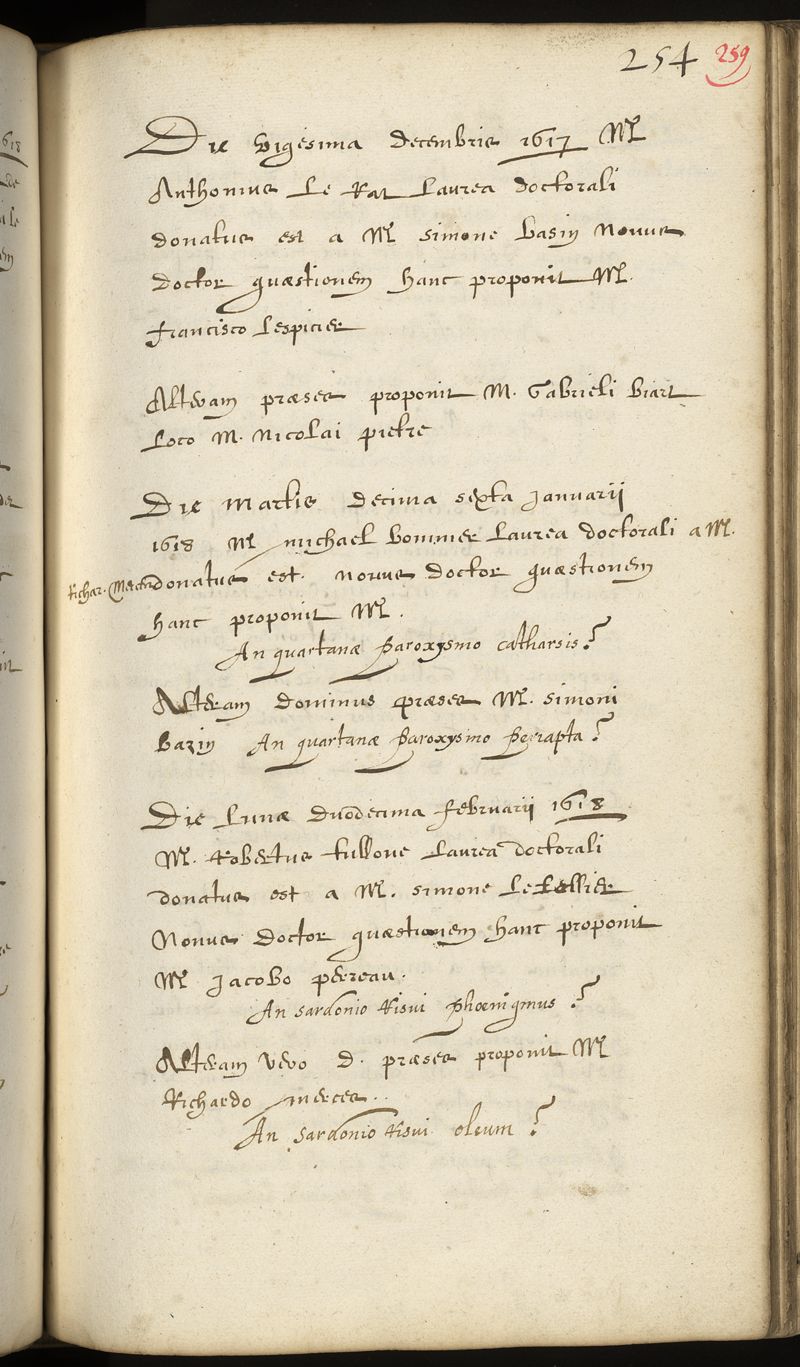 254 259
Die vigesima decembris 1617 Mr
Anthonius Le Rat Laurea doctorali
donatus est a Mr simone basin Novus
doctor quæstionem hanc proponit Mr.
francisco Lespicier
Alteram præses proponit M. Gabrieli biart
Loco M. Nicolai pietre
Die Martis decima sexta Januarii
1618 Mr michael bommier Laurea doctorali a Mr.
Richar. donatus est. novus doctor quæstionem
hanc proponit Mr.
An quartanæ paroxysmo catharsis?
Alteram dominus præses Mr. simoni
bazin An quartanæ paroxysmo
Die Lunæ duodecima februarii 1618
Mr. Robertus tulloue Laurea doctorali
donatus est a Mr. simone Letellier
Novus doctor quæstionem hanc proponit
Mr Jacobo perreau.
An sardonio Risui phœnigmus?
Alteram vero D. præses proponit Mr
Richardo merces..
An sardonio Risui oleum?